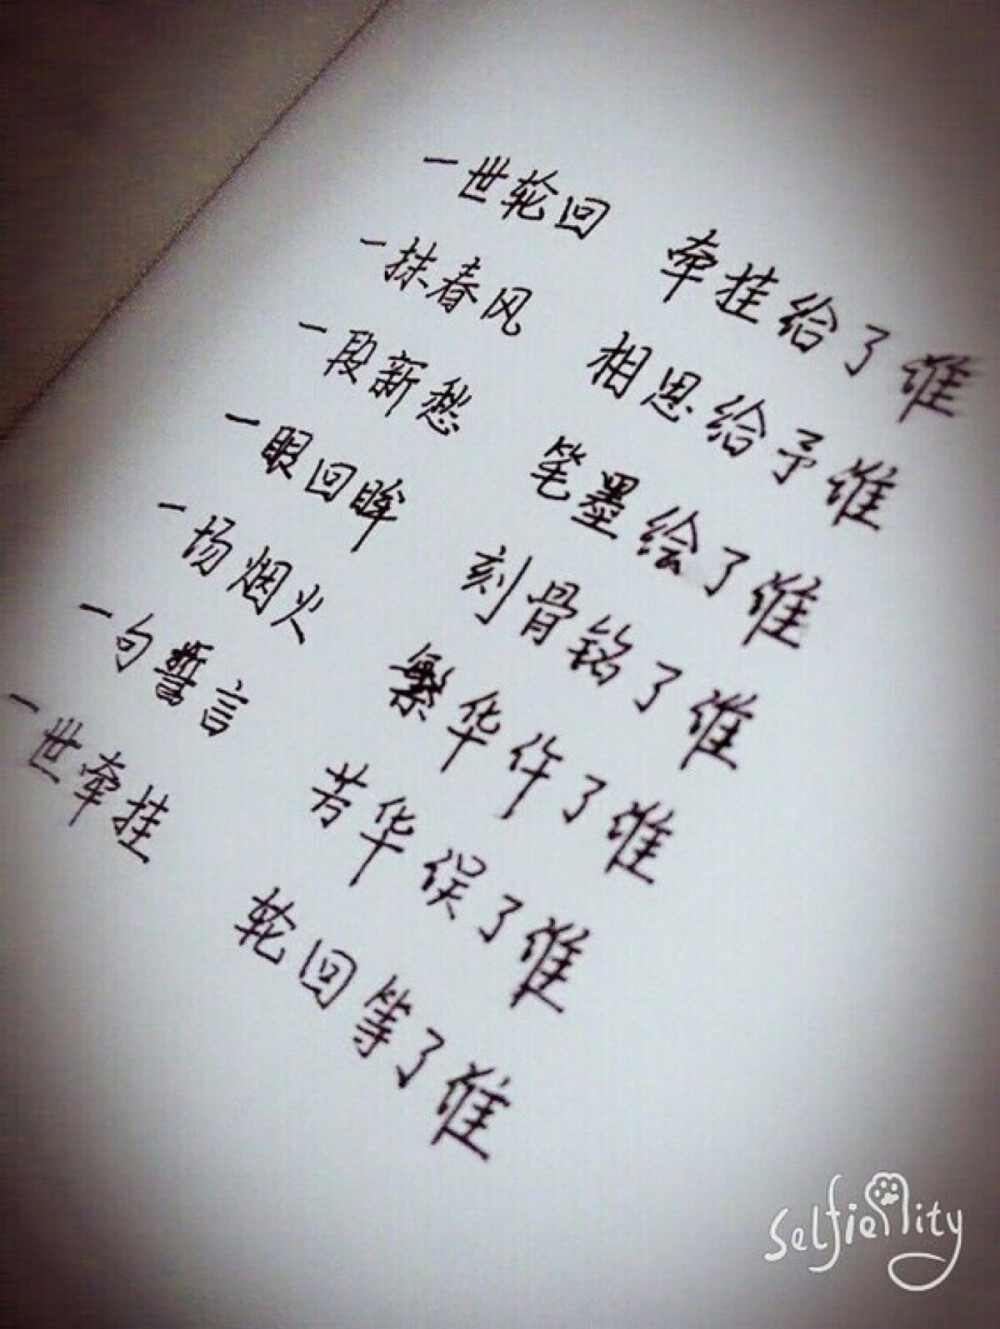 一世轮回 牵挂给了谁
一抹春风 相思给予谁
一段新愁 笔墨绘了谁
一眼回眸 刻骨铭了谁
一场烟火 繁华作了谁
一句誓言 芳华误了谁
一世牵挂 轮回等了谁
Selfie City